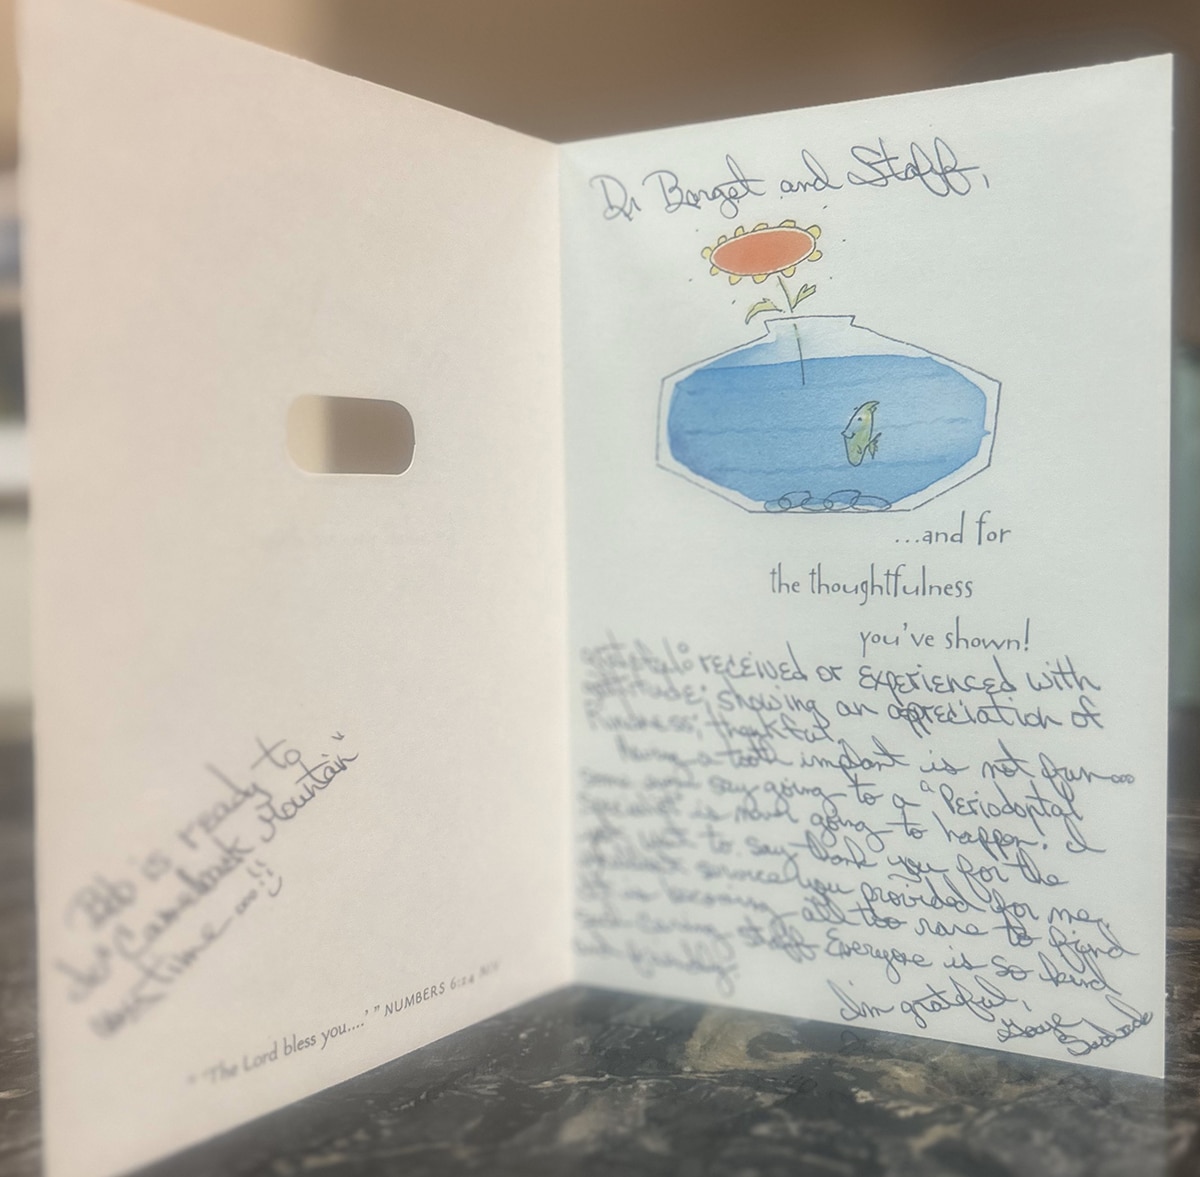 Bob is ready to
do "Camelback Mountain"
next time
"'The Lord bless you....'" NUMBERS 6:24
Dr Barget and Staff,
...and for
the thoughtfulness
you've shown!
grateful: received or experienced with
gratitude; showing an appreciation of
kindness; thankful.
Having a tooth implant is not fun...
some say going to a "Periodontal
Specialist is never going to happen. I
just want to say thank you for the
service you provided for me.
It is becoming all too rare to find
such caring staff Everyone is so kind
and friendly!
I'm grateful,
Gaye